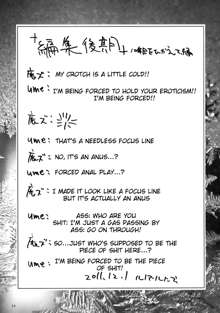 編集後記
魔ズ: MY CROTCH IS A LITTLE COLD!!
ume: I'M BEING FORCED TO HOLD YOUR EROTICISM!
魔ズ:
ume: THAT'S A NEEDLESS FOCUS LINE
魔ズ: NO, IT'S AN ANUS...?
ume: FORCED ANAL PLAY...?
魔ズ: I MADE IT LOOK LIKE A FOCUS LINE
BUT IT'S ACTUALLY AN ANUS
ume: ASS: WHO ARE YOU
SHIT: I'M JUST A GAS PASSING BY
ASS: GO ON THROUGH!
魔ズ: SO...JUST WHO'S SUPPOSED TO BE THE
PIECE OF SHIT HERE...?
ume: I'M BEING FORCED TO BE THE PIECE
OF SHIT!
2011.12.1